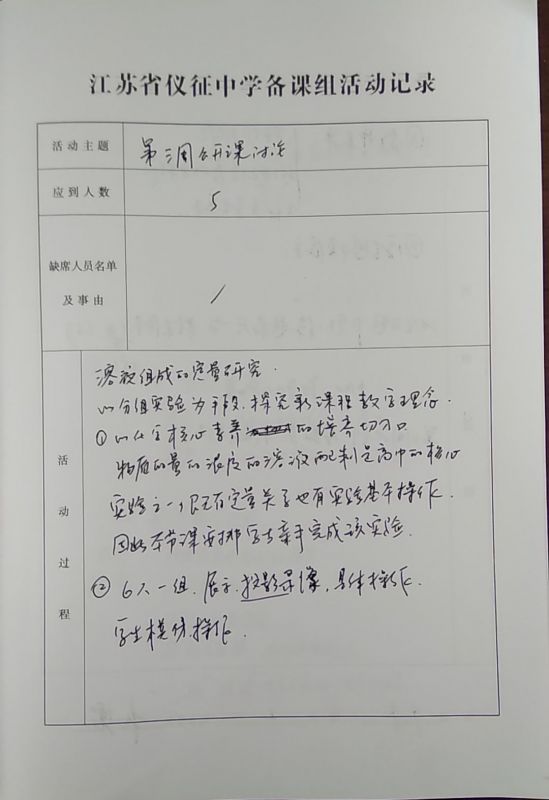 江苏省仪征中学备课组活动记录
活动主题
第三周公开课讨论
应到人数
5
缺席人员名单
及事由
/
活动过程
溶液组成的定量研究.
以分组实验为手段,探究新课程教学理念.
①以化学核心素养的培养切入口
物质的量的浓度的溶液配制是高中的核心
实验之一,既有定量关系也有实验基本操作.
因此本节课安排学生亲手完成该实验.
②6人一组.展示,投影录像,具体操作.
学生模仿操作.